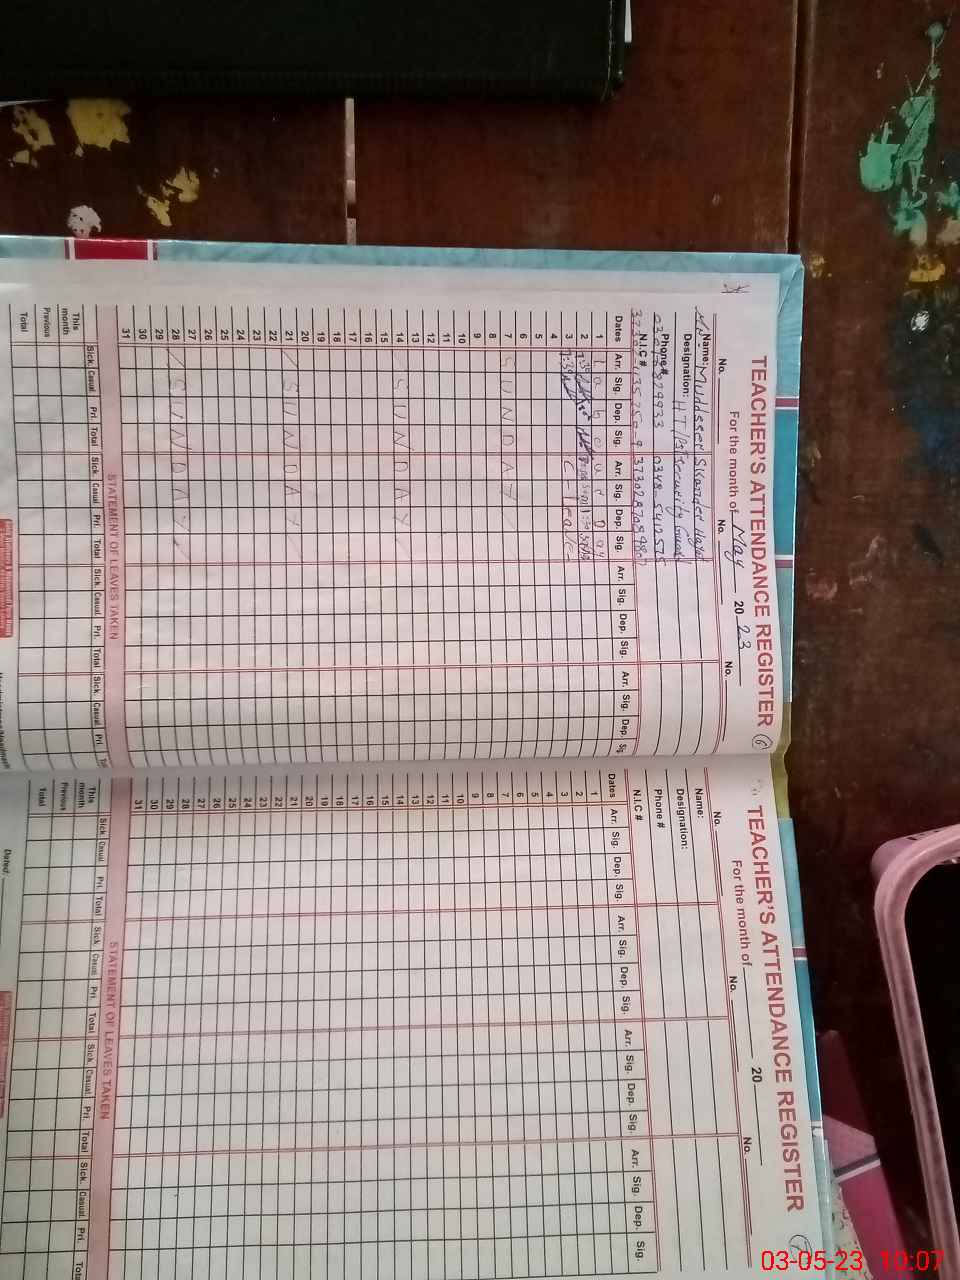 TEACHER'S ATTENDANCE REGISTER 6
For the month of May 2023
No. No. No.
Name: Muddsser Skander Hayat
Designation: H T / Security Guard
Phone # 0348-5412575
N.I.C #
Dates Arr. Sig. Dep. Sig. Arr. Sig. Dep. Sig. Arr. Sig. Dep. Sig. Arr. Sig. Dep. Sig.
1 Labour Day
2
3 C-Leave
4
5
6
7 SUNDAY
8
9
10
11
12
13
14 SUNDAY
15
16
17
18
19
20
21 SUNDAY
22
23
24
25
26
27
28 SUNDAY
29
30
31
STATEMENT OF LEAVES TAKEN
Sick. Casual Pri. Total Sick. Casual Pri. Total Sick. Casual Pri. Total Sick. Casual Pri.
This month
Previous
Total
TEACHER'S ATTENDANCE REGISTER
For the month of 20
No. No. No.
Name:
Designation:
Phone #
N.I.C #
Dates Arr. Sig. Dep. Sig. Arr. Sig. Dep. Sig. Arr. Sig. Dep. Sig. Arr. Sig. Dep. Sig.
1
2
3
4
5
6
7
8
9
10
11
12
13
14
15
16
17
18
19
20
21
22
23
24
25
26
27
28
29
30
31
STATEMENT OF LEAVES TAKEN
Sick. Casual Pri. Total Sick. Casual Pri. Total Sick. Casual Pri. Total Sick. Casual Pri.
This month
Previous
Total
Dated:
03-05-23 10:07